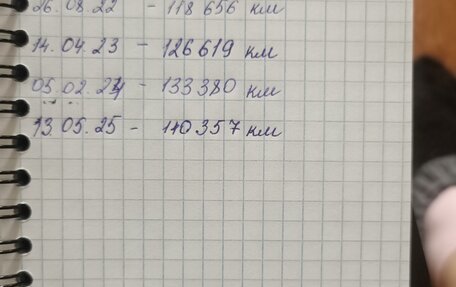 26.08.22 - 118 656 км
14.04.23 - 126619 км
05.02.24 - 133380 км
13.05.25 - 140357 км